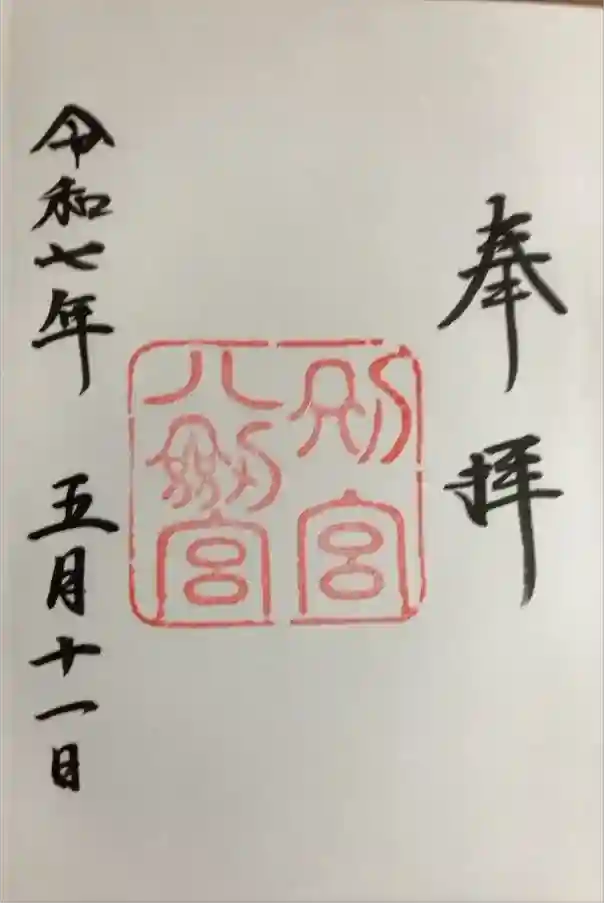 奉拝
別宮
八剱宮
令和七年 五月十一日